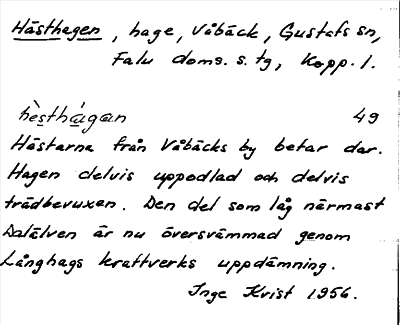 Hästhagen, hage, Våbäck, Gustafs sn,
Falu doms. s. tg, Kopp. l.
hè̀sthá̀gan 49
Hästarna från Våbäcks by betar där.
Hagen delvis uppodlad och delvis
trädbevuxen. Den del som låg närmast
Dalälven är nu översvämmad genom
Långhags kraftverks uppdämning.
Inge Kvist 1956.